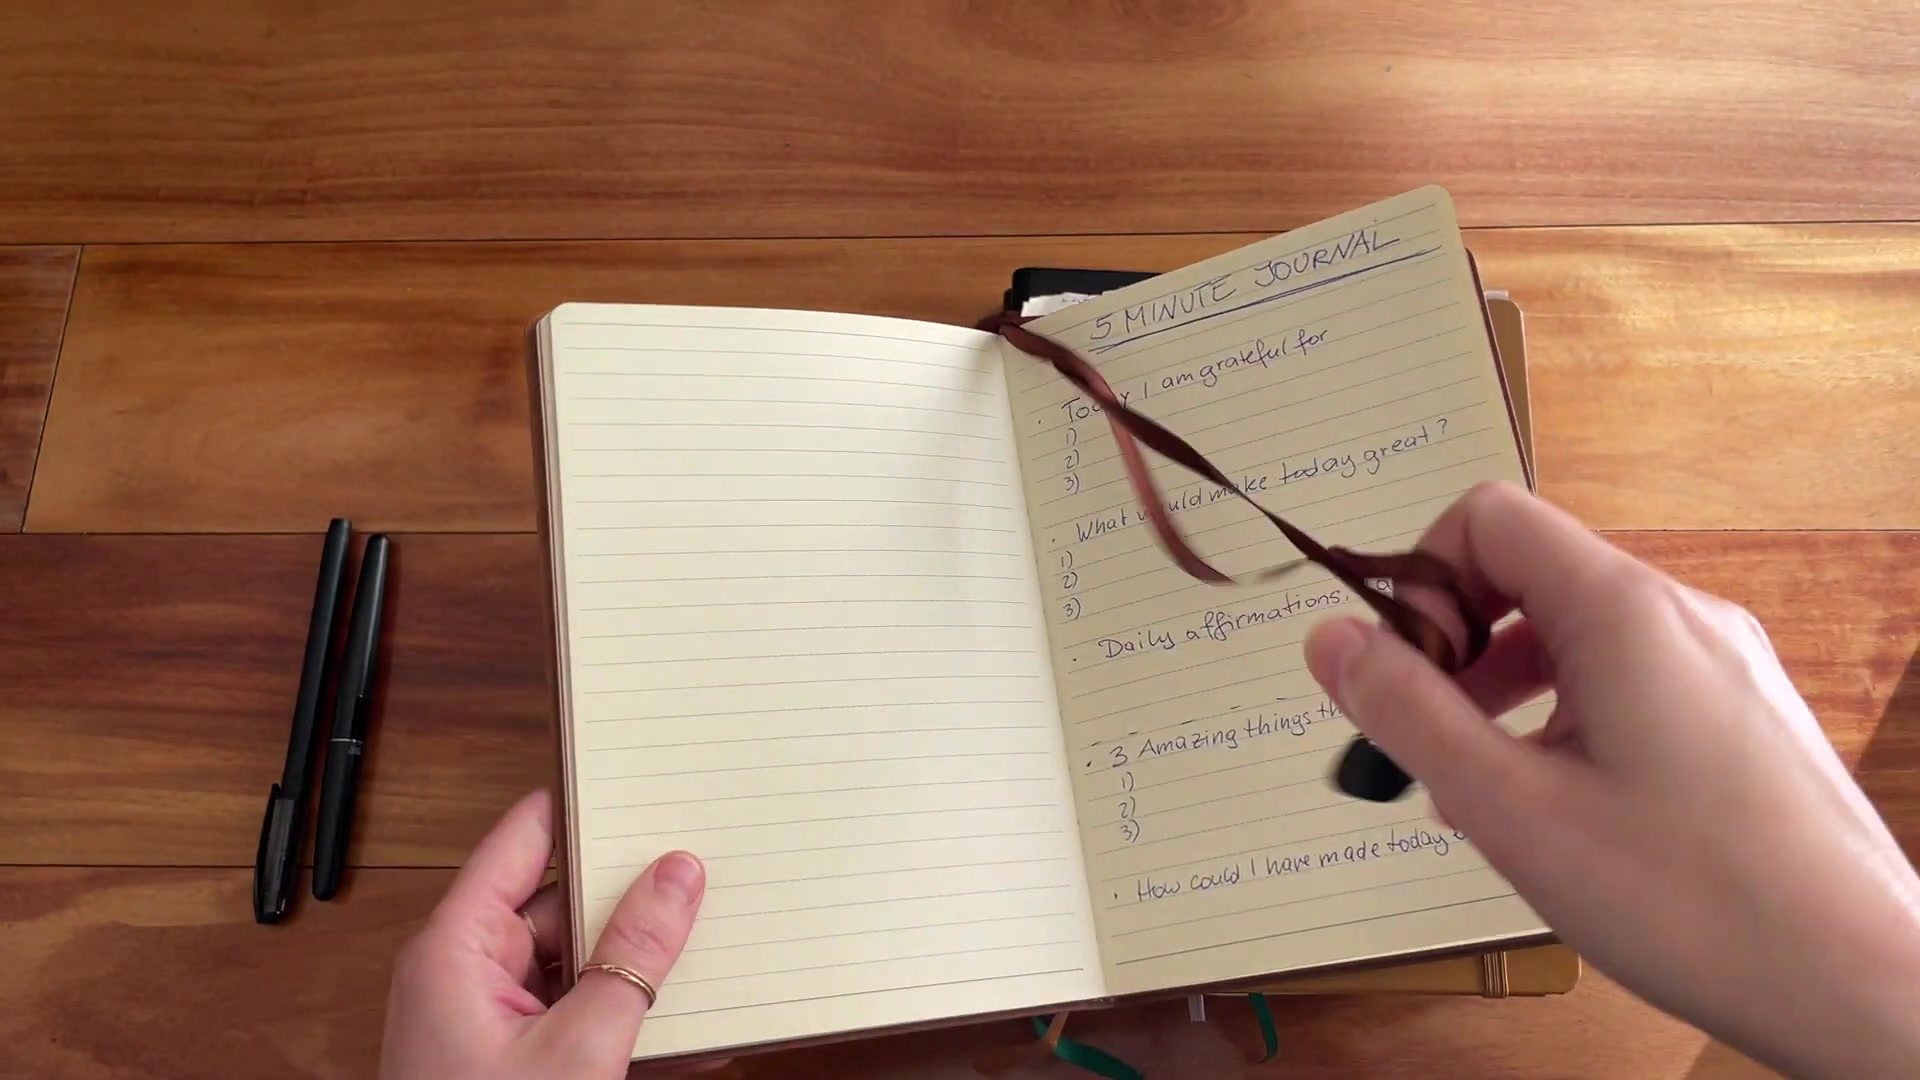 5 MINUTE JOURNAL
· Today I am grateful for
1)
2)
3)
· What would make today great?
1)
2)
3)
· Daily affirmations.
· 3 Amazing things
1)
2)
3)
· How could I have made today